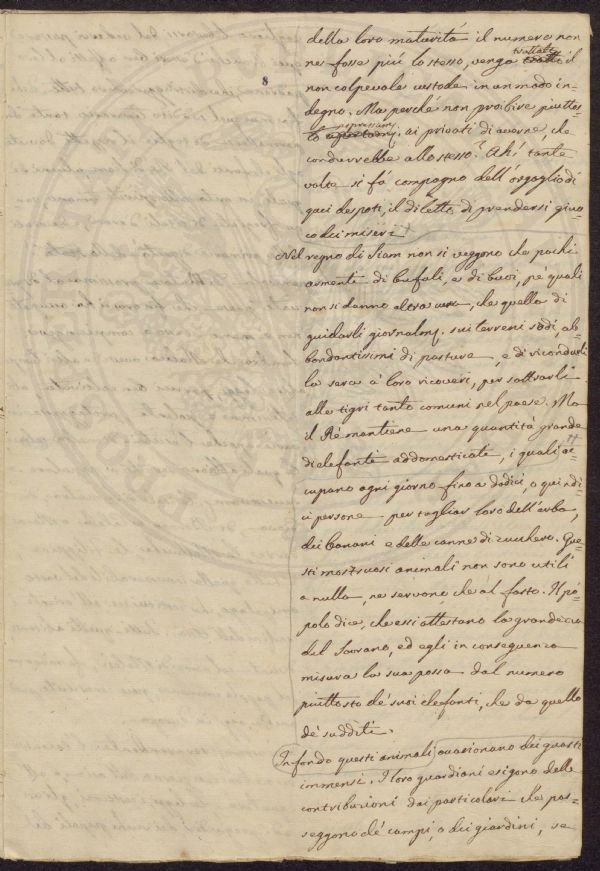 8
della loro maturitá il numero non
ne fosse piú lo stesso, venga trattato il
non colpevole custode in un modo in=
degno. Ma perché non proibire piuttos=
to espressam. ai privati di averne, che
condurrebbe allo stesso? Ahi tante
volte si fá compagno dell'orgoglio di
quei despoti, il diletto di prendersi giuo=
co dei miseri
Nel regno di Siam non si veggono che pochi
armenti di bufali, e di buoi, pe quali
non si danno altra cura, che quella di
guidarli giornalm. sui terreni sodi, ab=
bondantissimi di pasture, e di ricondurli
la sera á loro ricoveri, per sottrarli
alle tigri tanto comuni nel paese. Ma
il Ré mantiene una quantitá grande
di elefanti addomesticati, i quali oc=
cupano ogni giorno fino a dodici, o quindi=
ci persone per tagliar loro dell'erba,
dei banani e delle canne di zucchero. Que=
sti mostruosi animali non sono utili
a nulla, ne servono che al fasto. Il pó=
polo dice, che essi attestano la grandezza
del Sovrano, ed egli in conseguenza
misura la sua possa dal numero
piuttosto dé suoi elefanti, che da quello
dé sudditi.
In fondo questi animali occasionano dei guasti
immensi. I loro guardiani esigono delle
contribuzioni dai particolari che pos=
seggono dé campi, o dei giardini, se